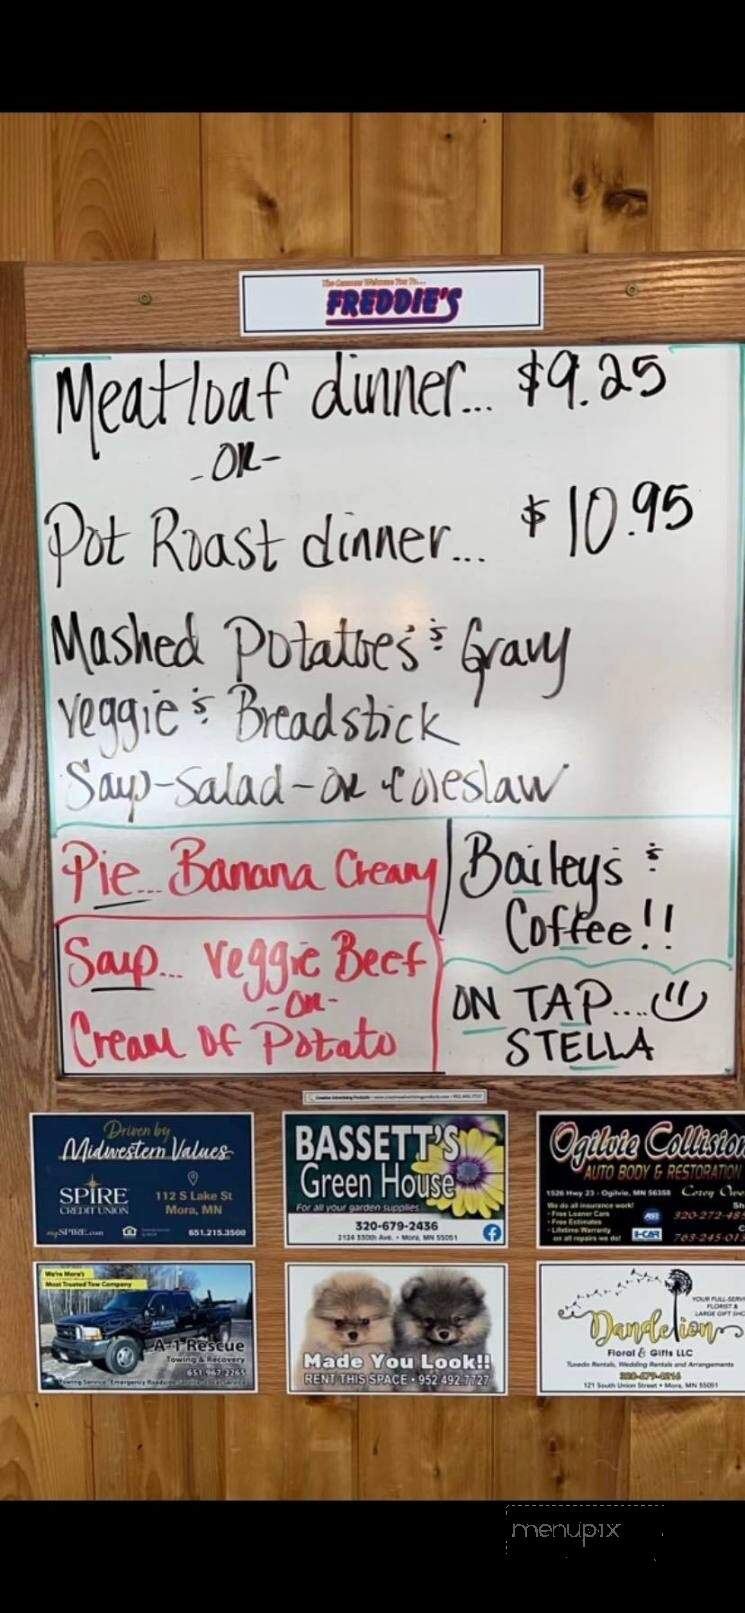 The Carsons Welcome You To...
FREDDIE'S
Meatloaf dinner... $9.25
-OR-
Pot Roast dinner... $10.95
Mashed Potatoes & Gravy
Veggie & Breadstick
Soup-Salad-OR Coleslaw
Pie... Banana Cream
Soup... Veggie Beef
-OR-
Cream Of Potato
Baileys &
Coffee!!
ON TAP....
STELLA
Driven by
Midwestern Values
SPIRE
CREDIT UNION
112 S Lake St
Mora, MN
mySPIRE.com
651.215.3500
BASSETT'S
Green House
For all your garden supplies
320-679-2436
2124 350th Ave. • Mora, MN 55051
Ogilvie Collision
AUTO BODY & RESTORATION
1526 Hwy 23 - Ogilvie, MN 56358
We do all insurance work!
• Free Loaner Cars
• Free Estimates
• Lifetime Warranty
on all repairs we do!
I-CAR
We're Mora's
Most Trusted Tow Company
A-1 Rescue
Towing & Recovery
651-967-2265
Made You Look!!
RENT THIS SPACE • 952 492 7727
YOUR FULL-SERV
FLORIST &
LARGE GIFT SHO
Dandelion
Floral & Gifts LLC
Tuxedo Rentals, Wedding Rentals and Arrangements
121 South Union Street • Mora, MN 55051
menupix